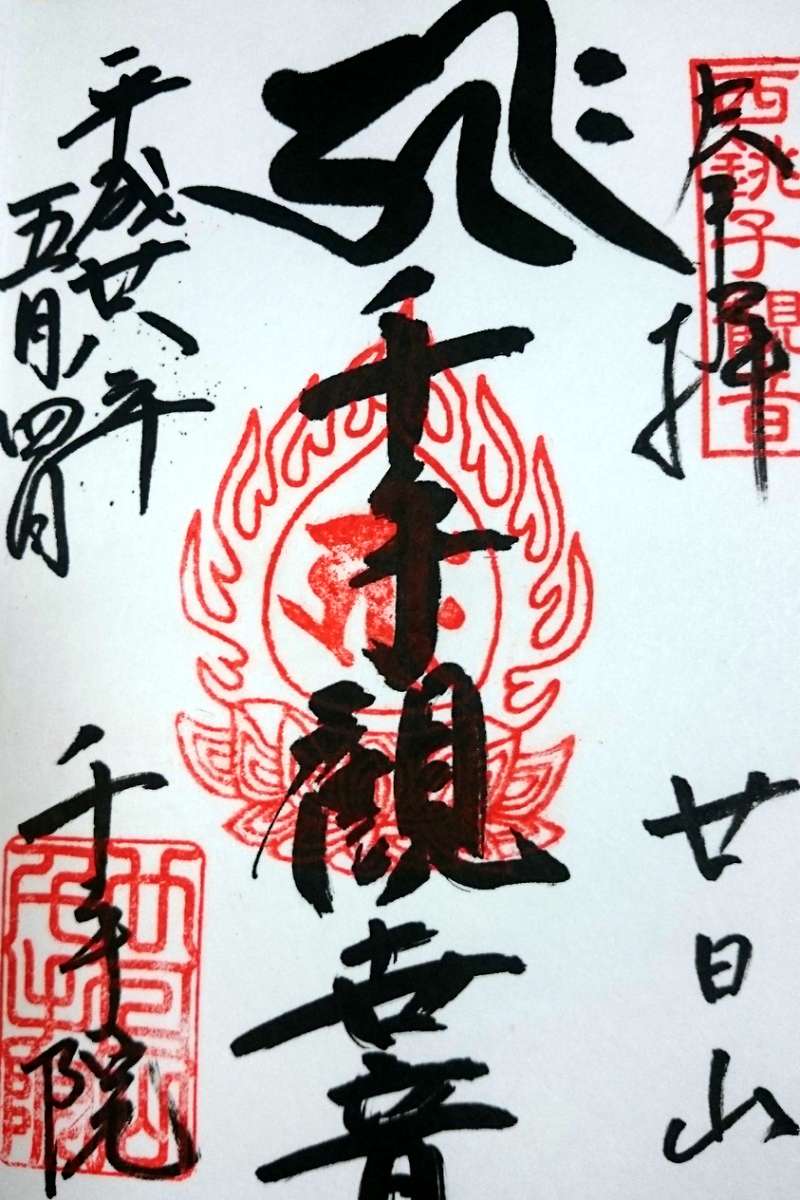 奉拝
西銚子觀音
廿日山
千手觀世音
平成廿八年
五月四日
千手院